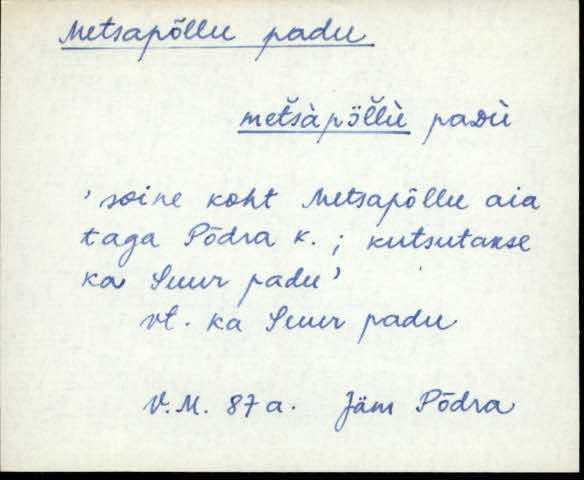 Metsapõllu padu
met̆sàpõl̆lù paᴅù
'soine koht Metsapõllu aia
taga Põdra k.; kutsutakse
ka Suur padu'
vt. ka Suur padu
V.M. 87 a. Jäm Põdra